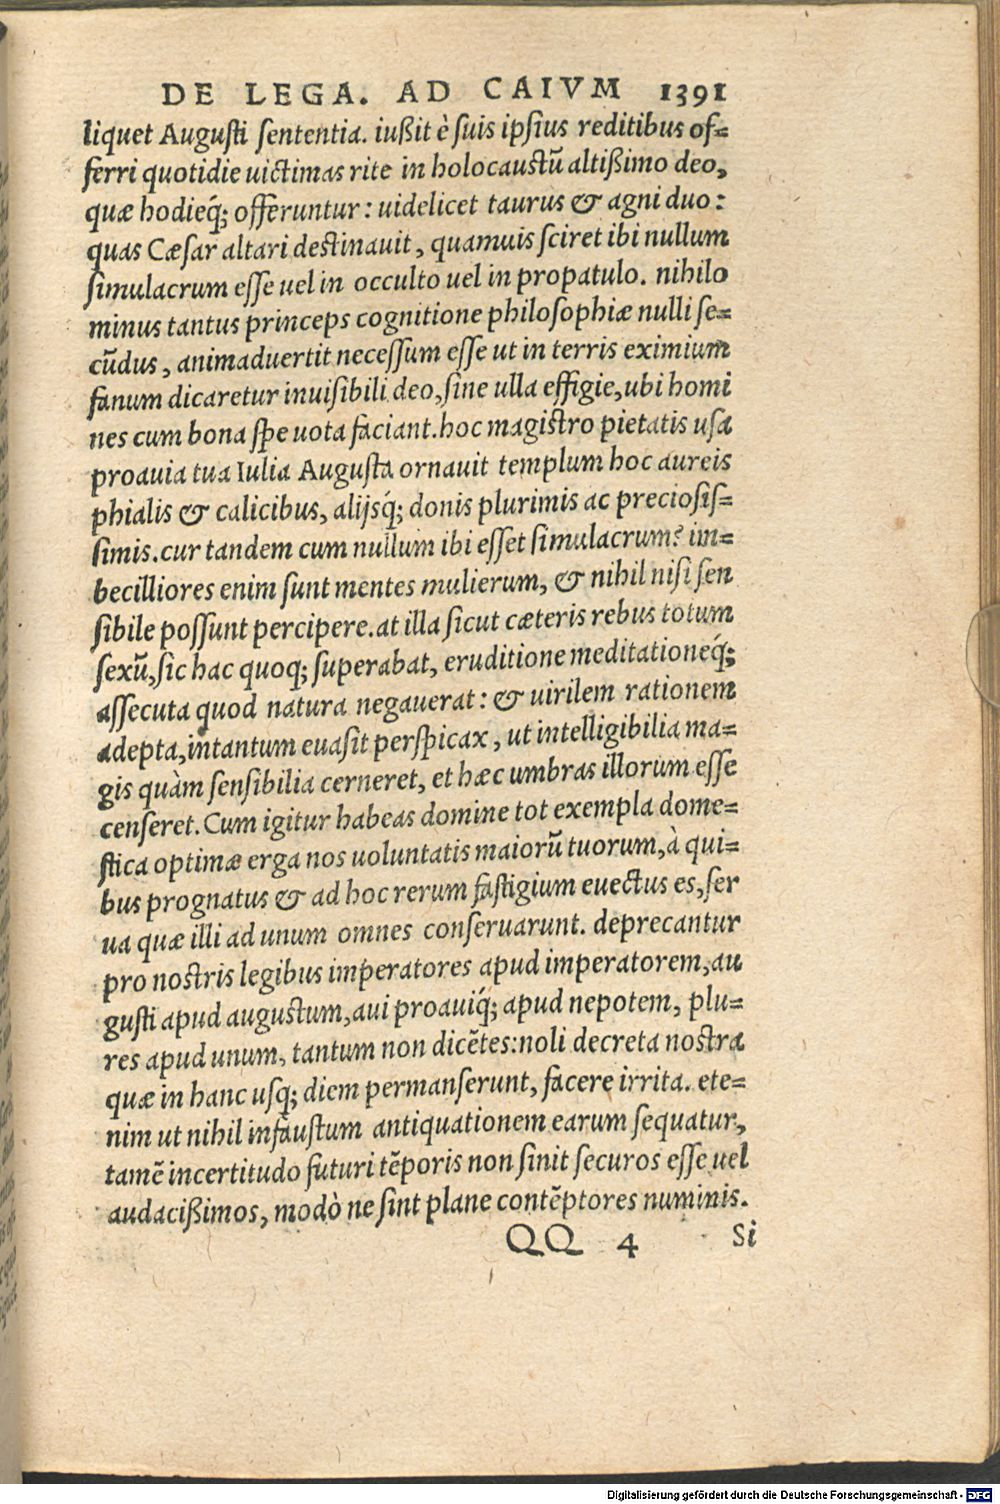 DE LEGA. AD CAIVM 1391
liquet Augusti sententia. iußit è suis ipsius reditibus of=
ferri quotidie uictimas rite in holocaustũ altißimo deo,
quæ hodieq́; offeruntur: uidelicet taurus & agni duo:
quas Cæsar altari destinauit, quamuis sciret ibi nullum
simulacrum esse uel in occulto uel in propatulo. nihilo
minus tantus princeps cognitione philosophiæ nulli se=
cũdus, animaduertit necessum esse ut in terris eximium
fanum dicaretur inuisibili deo, sine ulla effigie, ubi homi
nes cum bona spe uota faciant. hoc magistro pietatis usa
proauia tua Iulia Augusta ornauit templum hoc aureis
phialis & calicibus, alijsq́; donis plurimis ac preciosis=
simis. cur tandem cum nullum ibi esset simulacrum? im=
becilliores enim sunt mentes mulierum, & nihil nisi sen
sibile possunt percipere. at illa sicut cæteris rebus totum
sexũ, sic hac quoq; superabat, eruditione meditationeq́;
assecuta quod natura negauerat: & uirilem rationem
adepta, intantum euasit perspicax, ut intelligibilia ma=
gis quàm sensibilia cerneret, et hæc umbras illorum esse
censeret. Cum igitur habeas domine tot exempla dome=
stica optimæ erga nos uoluntatis maiorũ tuorum, à qui=
bus prognatus & ad hoc rerum fastigium euectus es, ser
ua quæ illi ad unum omnes conseruarunt. deprecantur
pro nostris legibus imperatores apud imperatorem, au
gusti apud augustum, aui proauiq́; apud nepotem, plu=
res apud unum, tantum non dicẽtes: noli decreta nostra
quæ in hanc usq; diem permanserunt, facere irrita. ete=
nim ut nihil infaustum antiquationem earum sequatur,
tamẽ incertitudo futuri tẽporis non sinit securos esse uel
audacißimos, modò ne sint plane contẽptores numinis.
QQ 4 Si
Digitalisierung gefördert durch die Deutsche Forschungsgemeinschaft - DFG